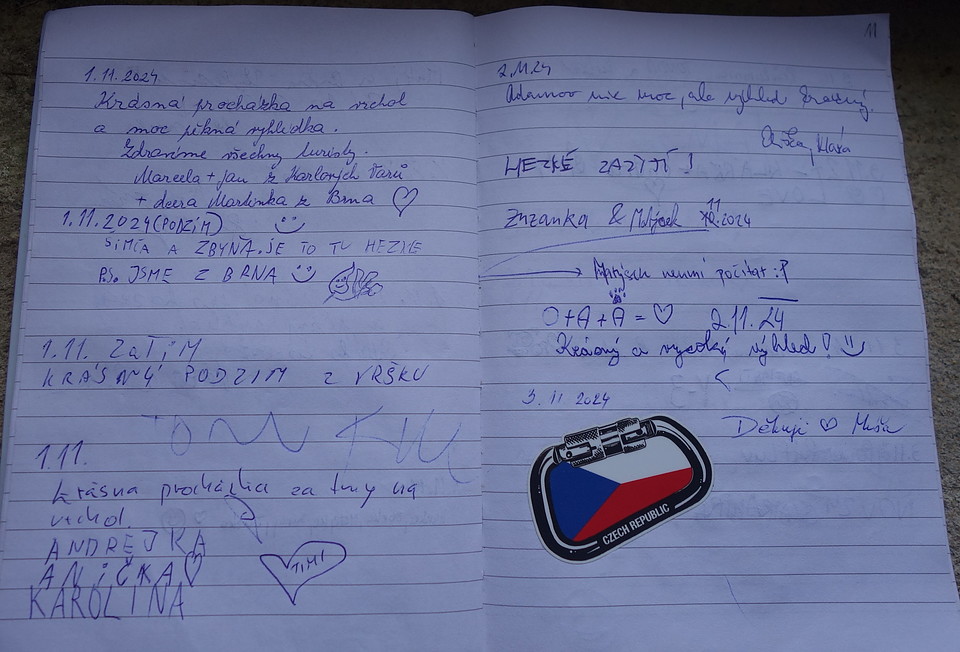 1.11.2024
Krásná procházka na vrchol
a moc pěkná vyhlídka.
Zdravíme všechny turisty.
Marcela + Jan z Karlových Varů
+ dcera Martinka z Brna ♡
1.11.2024 (PODZIM)
SIMČA A ZBYŇA. JE TO TU HEZKE
P.S. JSME Z BRNA
1.11. ZaTiM
KRÁSNÝ PODZIM z VRŠKU
1.11.
krásna procházka za tmy na
vrchol.
ANDREJKA
ANiČKA♡
KAROLINA
TIMI
11
2.11.24
Adamov nic moc, ale výhled krásný.
Klára
HEZKÉ ZAŽITÍ!
Zuzanka & Matýsek 11.2024
Matýsek neumí počítat :P
O+A+A = ♡ 2.11.24
Krásný a vysoký výhled!
3.11 2024
Děkuji ♡
CZECH REPUBLIC